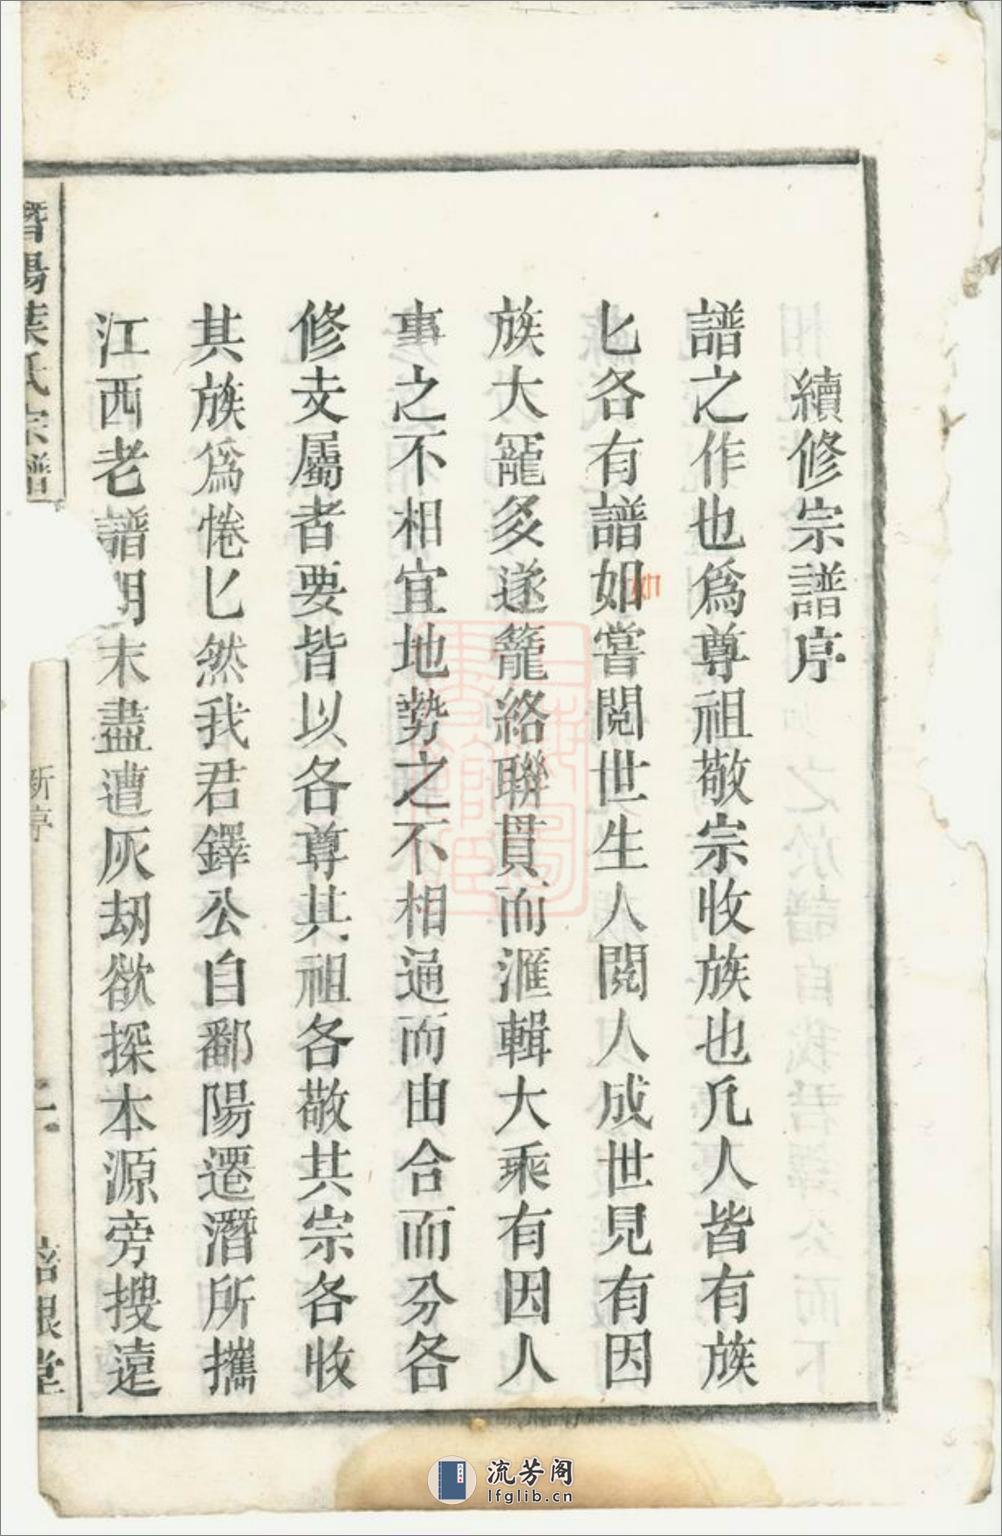 續修宗譜序
譜之作也爲尊祖敬宗收族也凡人皆有族
匕各有譜如嘗閱世生人閱人成世見有因
族大寵多遂籠絡聯貫而滙輯大乘有因人
事之不相宜地勢之不相通而由合而分各
修支屬者要皆以各尊其祖各敬其宗各收
其族爲惓匕然我君鐸公自鄱陽遷潛所攜
江西老譜明末盡遭灰劫欲探本源旁搜遠
潛陽葉氏宗譜
新序
二
培根堂
如
流芳阁
lfglib.cn